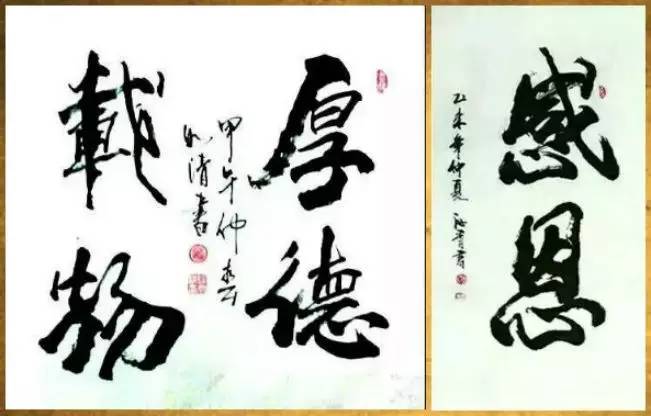 厚德
載物
甲午仲春
清書
感恩
乙未年仲夏